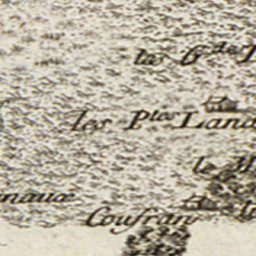 les G.des L
les P.tes Land
le M
naux
Coufran